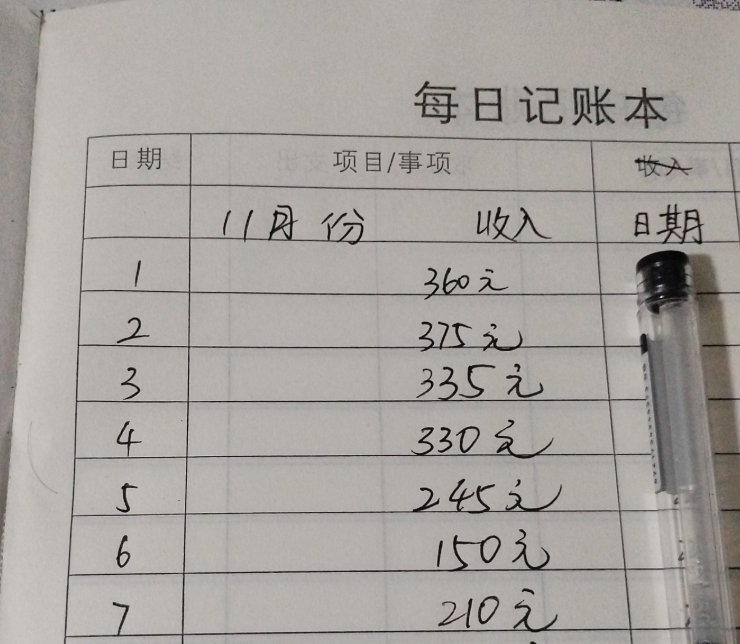 每日记账本
日期 项目/事项 收入
11月份 收入 日期
1 360元
2 375元
3 335元
4 330元
5 245元
6 150元
7 210元